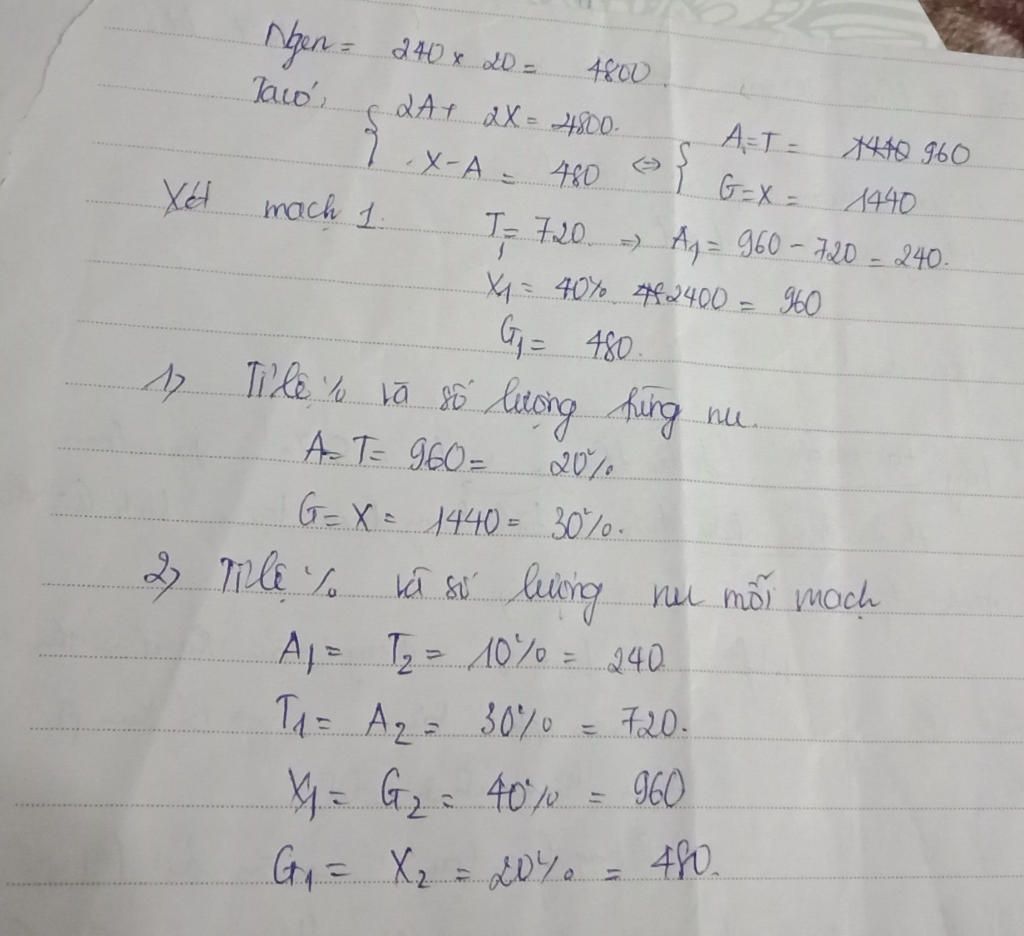 Ngen = 240 x 20 = 4800.
Ta có, { 2A + 2X = 4800.
X - A = 480 <=> { A = T = 1440 960
G = X = 1440
Xét mạch 1. T1 = 720. => A1 = 960 - 720 = 240.
X1 = 40%. 48 2400 = 960
G1 = 480.
1) Tỉ lệ % và số lượng từng nu.
A = T = 960 = 20%
G = X = 1440 = 30%.
2) Tỉ lệ % và số lượng nu mỗi mạch
A1 = T2 = 10% = 240
T1 = A2 = 30% = 720.
X1 = G2 = 40% = 960
G1 = X2 = 20% = 480.